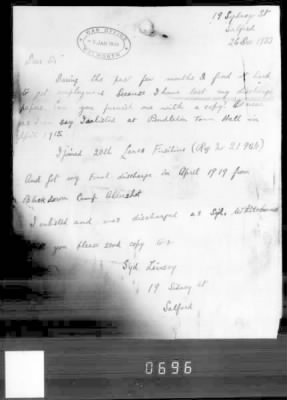 19 Sydney St
Salford
26 Dec 1933
WAR OFFICE
JAN 19
Dear Sir
During the past few months I find it hard
to get employment because I have lost my discharge
papers. can you furnish me with a copy?
say I enlisted at Pendleton Town Hall in
April 1915.
I joined 20th Lancs Fusiliers (Reg No 21966)
And got my final discharge in April 1919 from
Blackdown Camp Aldershot
I enlisted and was discharged as Syd.
you please send copy to:-
Syd Linsey
19 Sidney St
Salford
0696